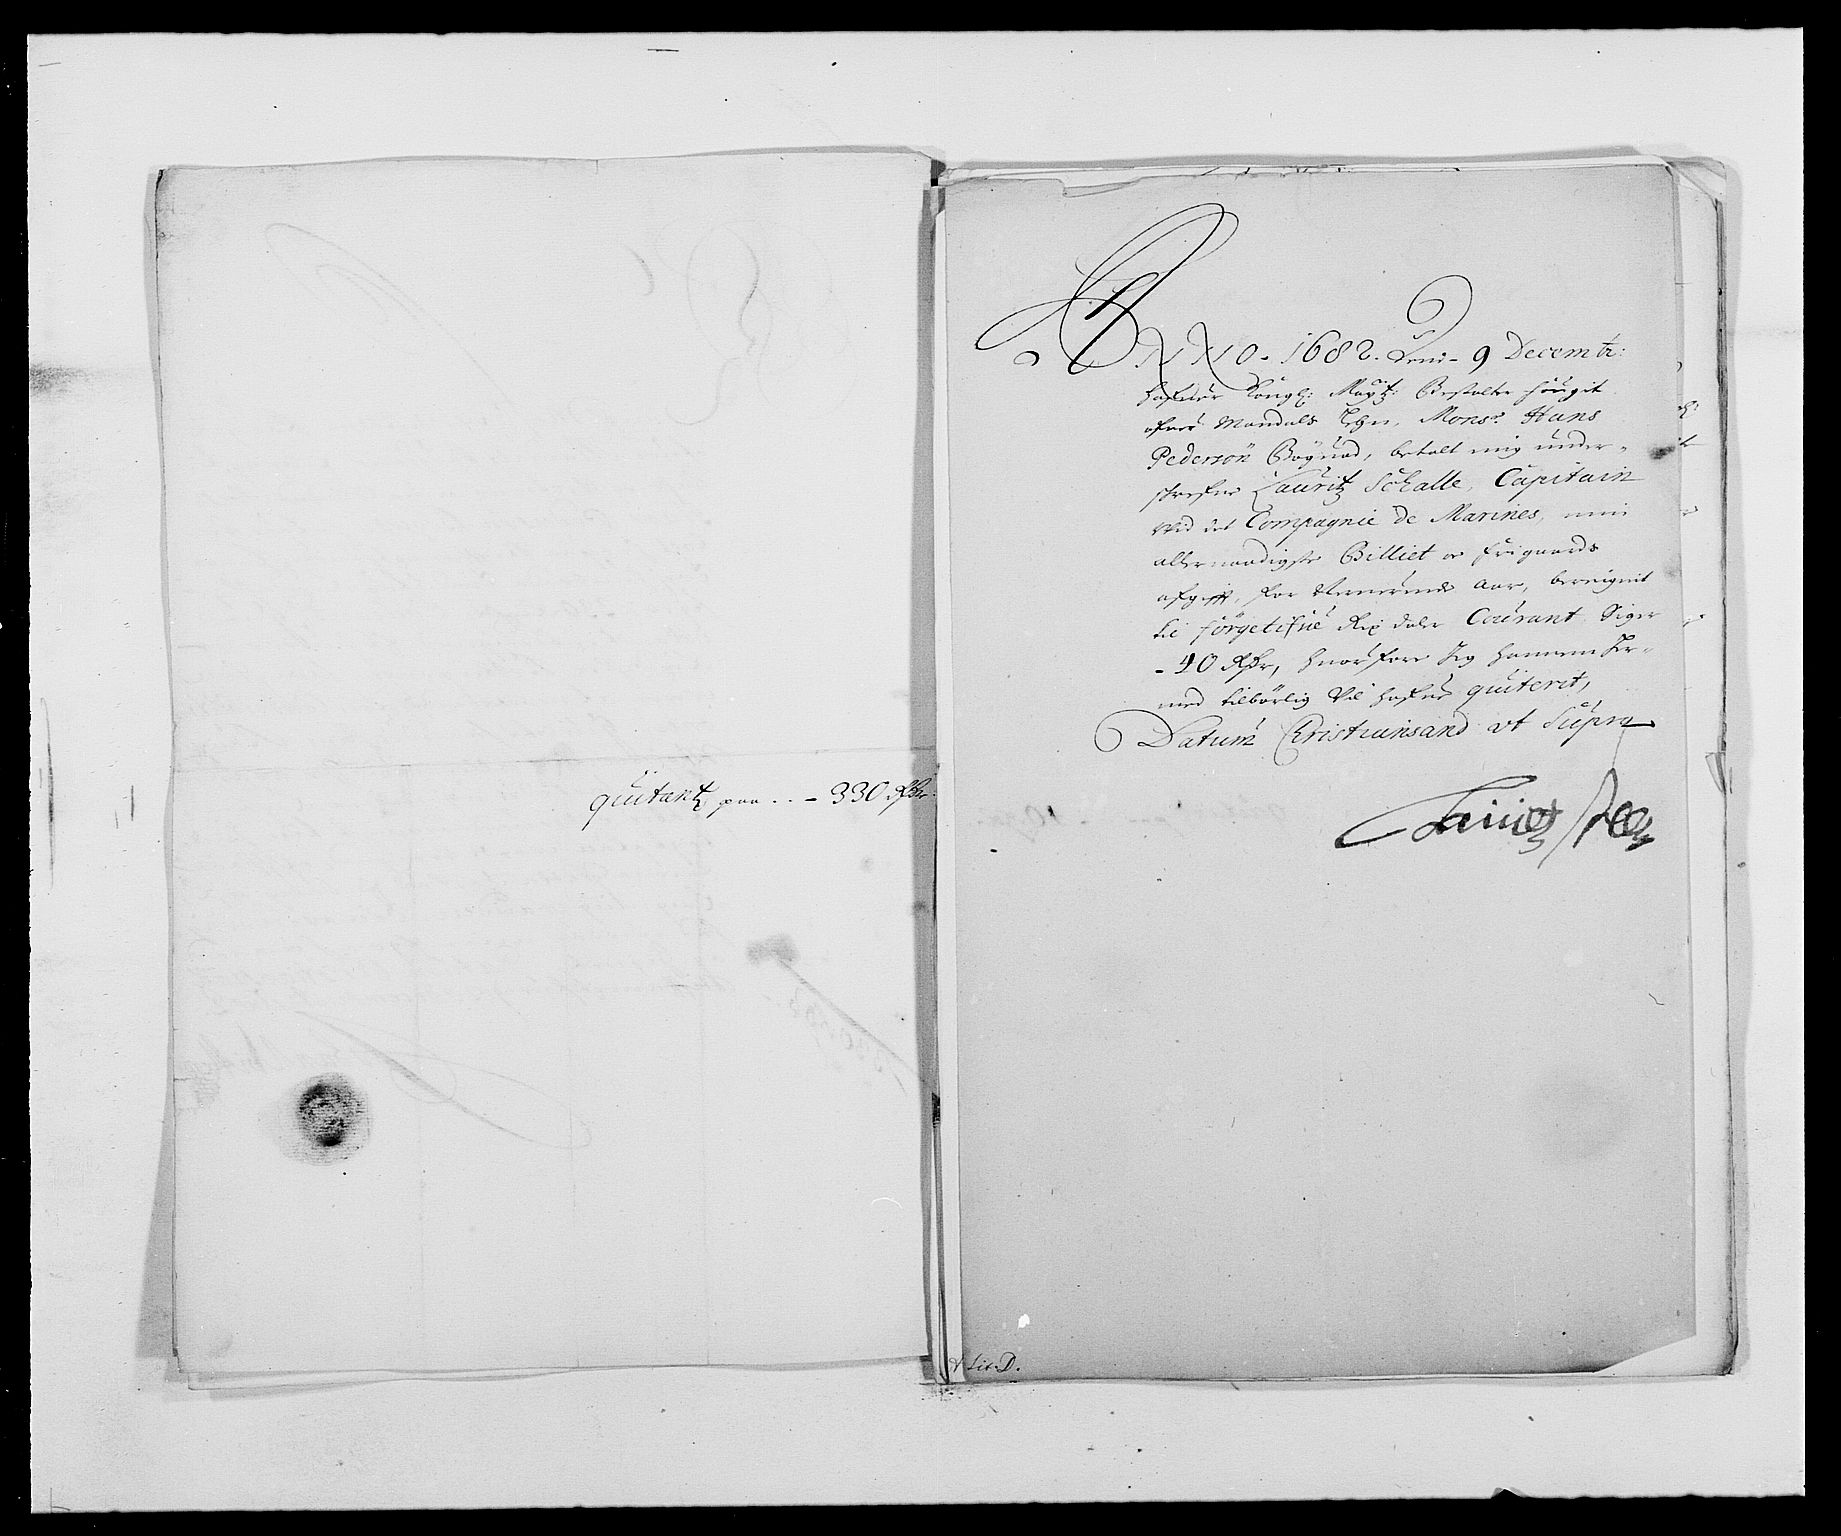 quitantz paa - - - 330 Rdr:
ANNO - 1682. Dend - 9 Decembr:
hafuer Kongl: Mayt: Bestalter fougit
ofuer Mandals Lehn, Mons:r Hans
Pedersön Bögvad, betalt mig under-
skrefne Lauritz Schalle, Capitain
ved det Compagnie de Marines, min
allernaadigste Billiet or frigaards
afgifft, for neruerende aar, bereignit
til förgetifue Rix daler Courant Siger
- 40 Rdr, huorfore Jeg hannem her-
med tilbörlig vil hafue quiterit,
Datum Christiansand ut Supra
Lauritz
Lit: D.